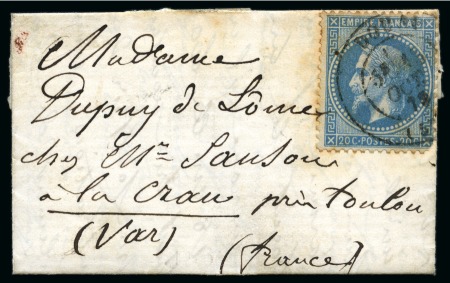 EMPIRE FRANÇAIS
20 C POSTES 20 C
Madame
Dupuy de Lôme
chez Mme Sanson
à la Crau près Toulon
(Var)
(France)